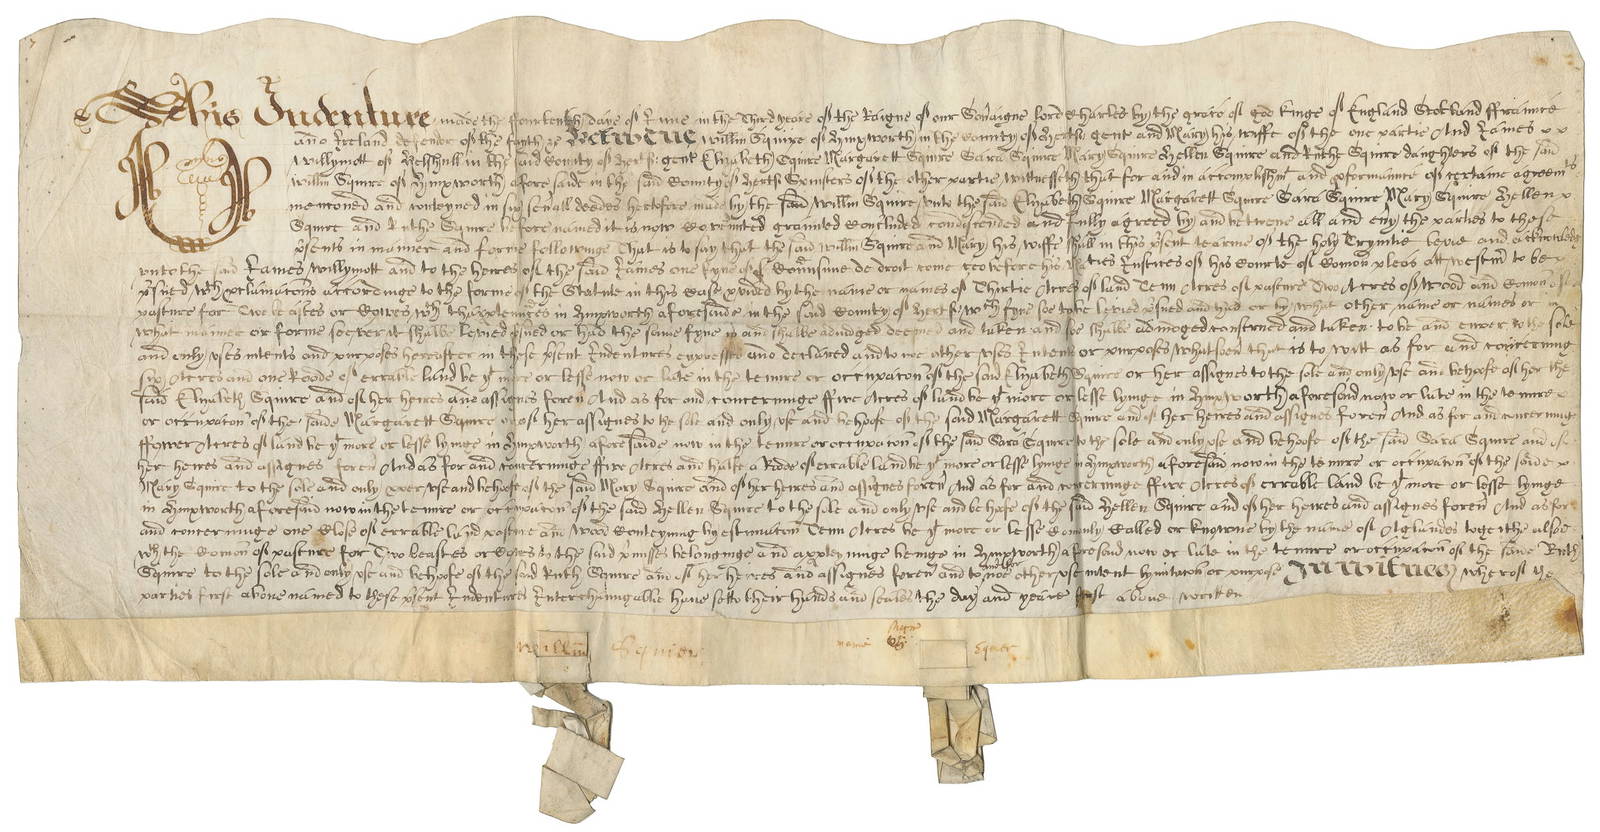 This Indenture made the fourtenth daye of June in the Third yeare of the Raigne of our Sovaigne lord Charles by the grace of god Kinge of England Scotland ffraunce
and Ireland defender of the fayth &c Betweene Willm Squire of Kympworth in the County of Hertf gent and Mary his wiffe of the one partie And James
Willymott of Kelshull in the said County of Hertf gent Elizabeth Squire Margarett Squire Sara Squire Mary Squire Hellen Squire and Ruthe Squire daughters of the said
Willm Squire of Kympworth aforesaide in the said County of Hertf Spinsters of the other partie Wittnesseth that for and in accomplishmt and pformance of certaine agreemts
menconed and conteyned in six seuall deedes heretofore made by the said Willm Squire vnto the said Elizabeth Squire Margarett Squire Sara Squire Mary Squire Hellen
Squire and Ruthe Squire before named it is now Covenñted graunted Concluded condiscended and fully agreed by and betwene all and eny the parties to these
pñsents in manner and forme followinge That is to say that the said Willm Squire and Mary his wiffe shall in this pñsent tearme of the holy Trynitie levie and acknowledg
vnto the said James Willymott and to the heires of the said James one fyne sur Conusance de droit come ceo before his Maties Justices of his Courte of Comon pleas att Westm to be
pñsued wth pclamacons accordinge to the forme of the Statute in this Case pvided by the name or names of Thirtie Acres of land Tenn Acres of pasture Two Acres of wood and Comon of
pasture for Two beastes or Cowes wth thapptennces in Kympworth aforesaide in the said County of Hertf wch fyne soe to be levied pñsued and had or by what other name or names or in
what manner or forme soever it shalbe levied pñsued or had the same fyne is and shalbe adiudged deemed and taken and soe shalbe adiudged construed and taken to be and enure to the sole
and only vses intents and purposes hereafter in these pñsent Indentures expressed and declared and to noe other vses Intents or purposes whatsoeu that is to witt as for and concerninge
six Acres and one Roode of errable land be yt more or lesse now or late in the tenure or occupacon of the said Elizabeth Squire or her assignes to the sole and only vse and behoofe of her the
said Elizabeth Squire and of her heires and assignes foreu And as for and concerninge ffive Acres of land be yt more or lesse lyinge in Kympworth aforesaid now or late in the tenure
or occupacon of the saide Margarett Squire or of her assignes to the sole and only vse and behoofe of the said Margarett Squire and of her heires and assignes foreu And as for and concerninge
ffower Acres of land be yt more or lesse lyinge in Kympworth aforesaide now in the tenure or occupacon of the said Sara Squire to the sole and only vse and behoofe of the said Sara Squire and of
her heires and assignes foreu And as for and concerninge ffive Acres and halfe a Rode of errable land be yt more or lesse lyinge in Kympworth aforesaid now in the tenure or occupacon of the saide
Mary Squire to the sole and only pper vse and behoofe of the said Mary Squire and of her heires and assignes foreu And as for and concerninge ffive Acres of errable land be yt more or lesse lyinge
in Kympworth aforesaid now in the tenure or occupacon of the said Hellen Squire to the sole and only vse and behoofe of the said Hellen Squire and of her heires and assignes foreu And as for
and concerninge one Close of errable land pasture and wood Conteyning by estimacon Tenn Acres be yt more or lesse Comonly Called or knowne by the name of Aglandes together also
wth the Comon of pasture for Two beastes or Cowes to the said pmisses belonginge and apptayninge beinge in Kympworth aforesaid now or late in the tenure or occupacon of the saide Ruth
Squire to the sole and only vse and behoofe of the said Ruth Squire and of her heires and assignes foreu and to noe other vse intent lymitacon or purpose In witnes wherof the
parties first above named to these pñsent Indentures Interchaungablie have sett their hands and seales the day and yeare first above written
Willim Squier
marie Squier